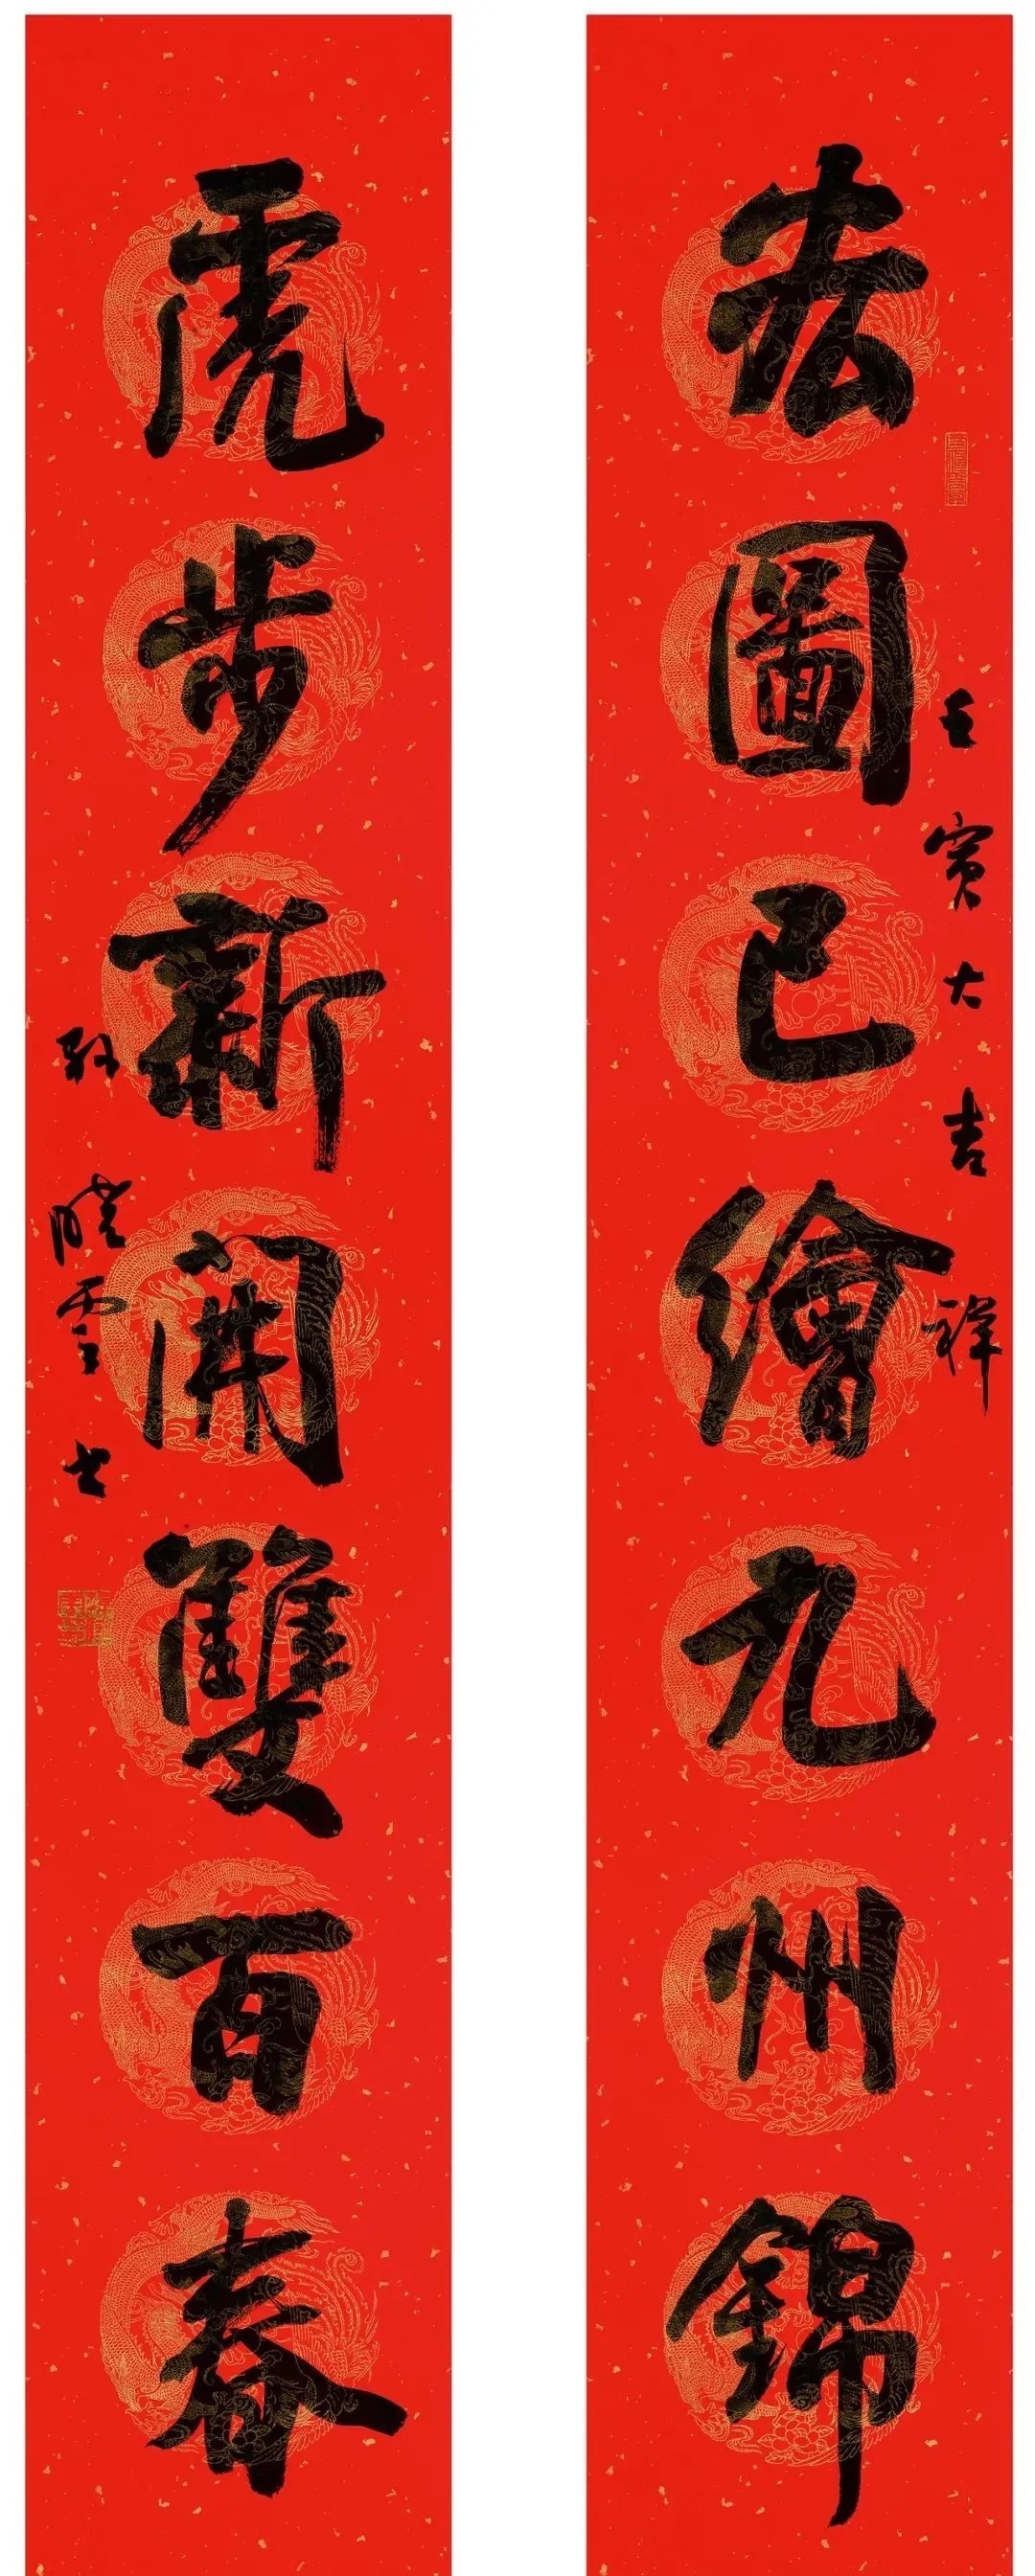 壬寅大吉祥
宏圖已繪九州錦
虎步新開雙百春
孫曉雲書